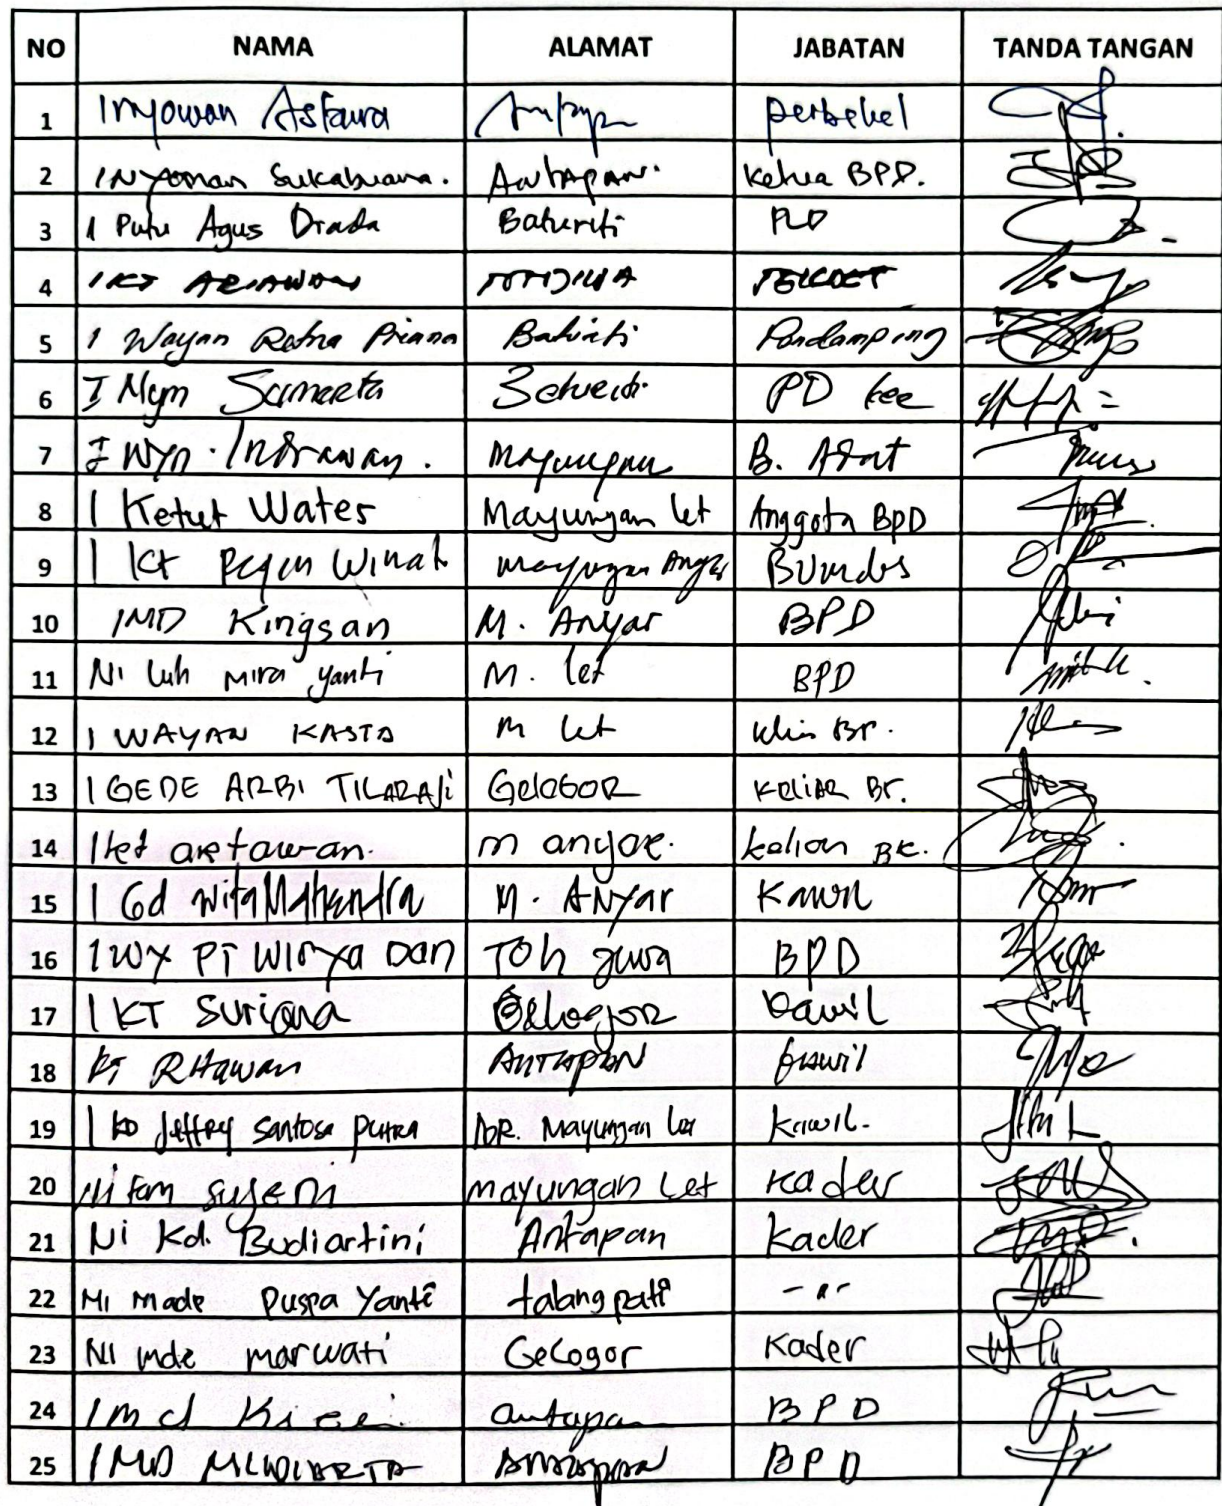 NO NAMA ALAMAT JABATAN TANDA TANGAN
1 Perbekel
2 I Nyoman Sukabuana. Antapan. Ketua BPD.
3 I Putu Agus Drada Baturiti PLD
4 I KT ARIAWAN
5 I Wayan Ratna Priana Baturiti Pendamping
6 I Nym Baturiti PD kec
7 I Wyn. Indrawan. Mayungan B. Adat
8 I Ketut Water Mayungan let Anggota BPD
9 I Kt Winat Mayungan Anyar BUMDes
10 I MD Kingsan M. Anyar BPD
11 Ni Luh Mira Yanti M. let BPD
12 I WAYAN KASTA M let Klin Br.
13 I GEDE ARBI TILARAJI GELOGOR KELIAN Br.
14 I Ket artawan. m anyar. kelian BR.
15 I Gd Wita Mahendra M. ANyar Kawil
16 BPD
17 I KT Suriana Gelogor Kawil
18 Kt Ritawan ANTAPAN Kawil
19 I KD Jeffrey Santosa Putra BR. Mayungan Let Kawil.
20 Mayungan Let Kader
21 Ni Kd. Budiartini Antapan Kader
22 Ni Made Puspa Yanti talang pati - " -
23 Ni Mde Marwati Gelogor Kader
24 I Md antapan BPD
25 I MD Antapan BPD